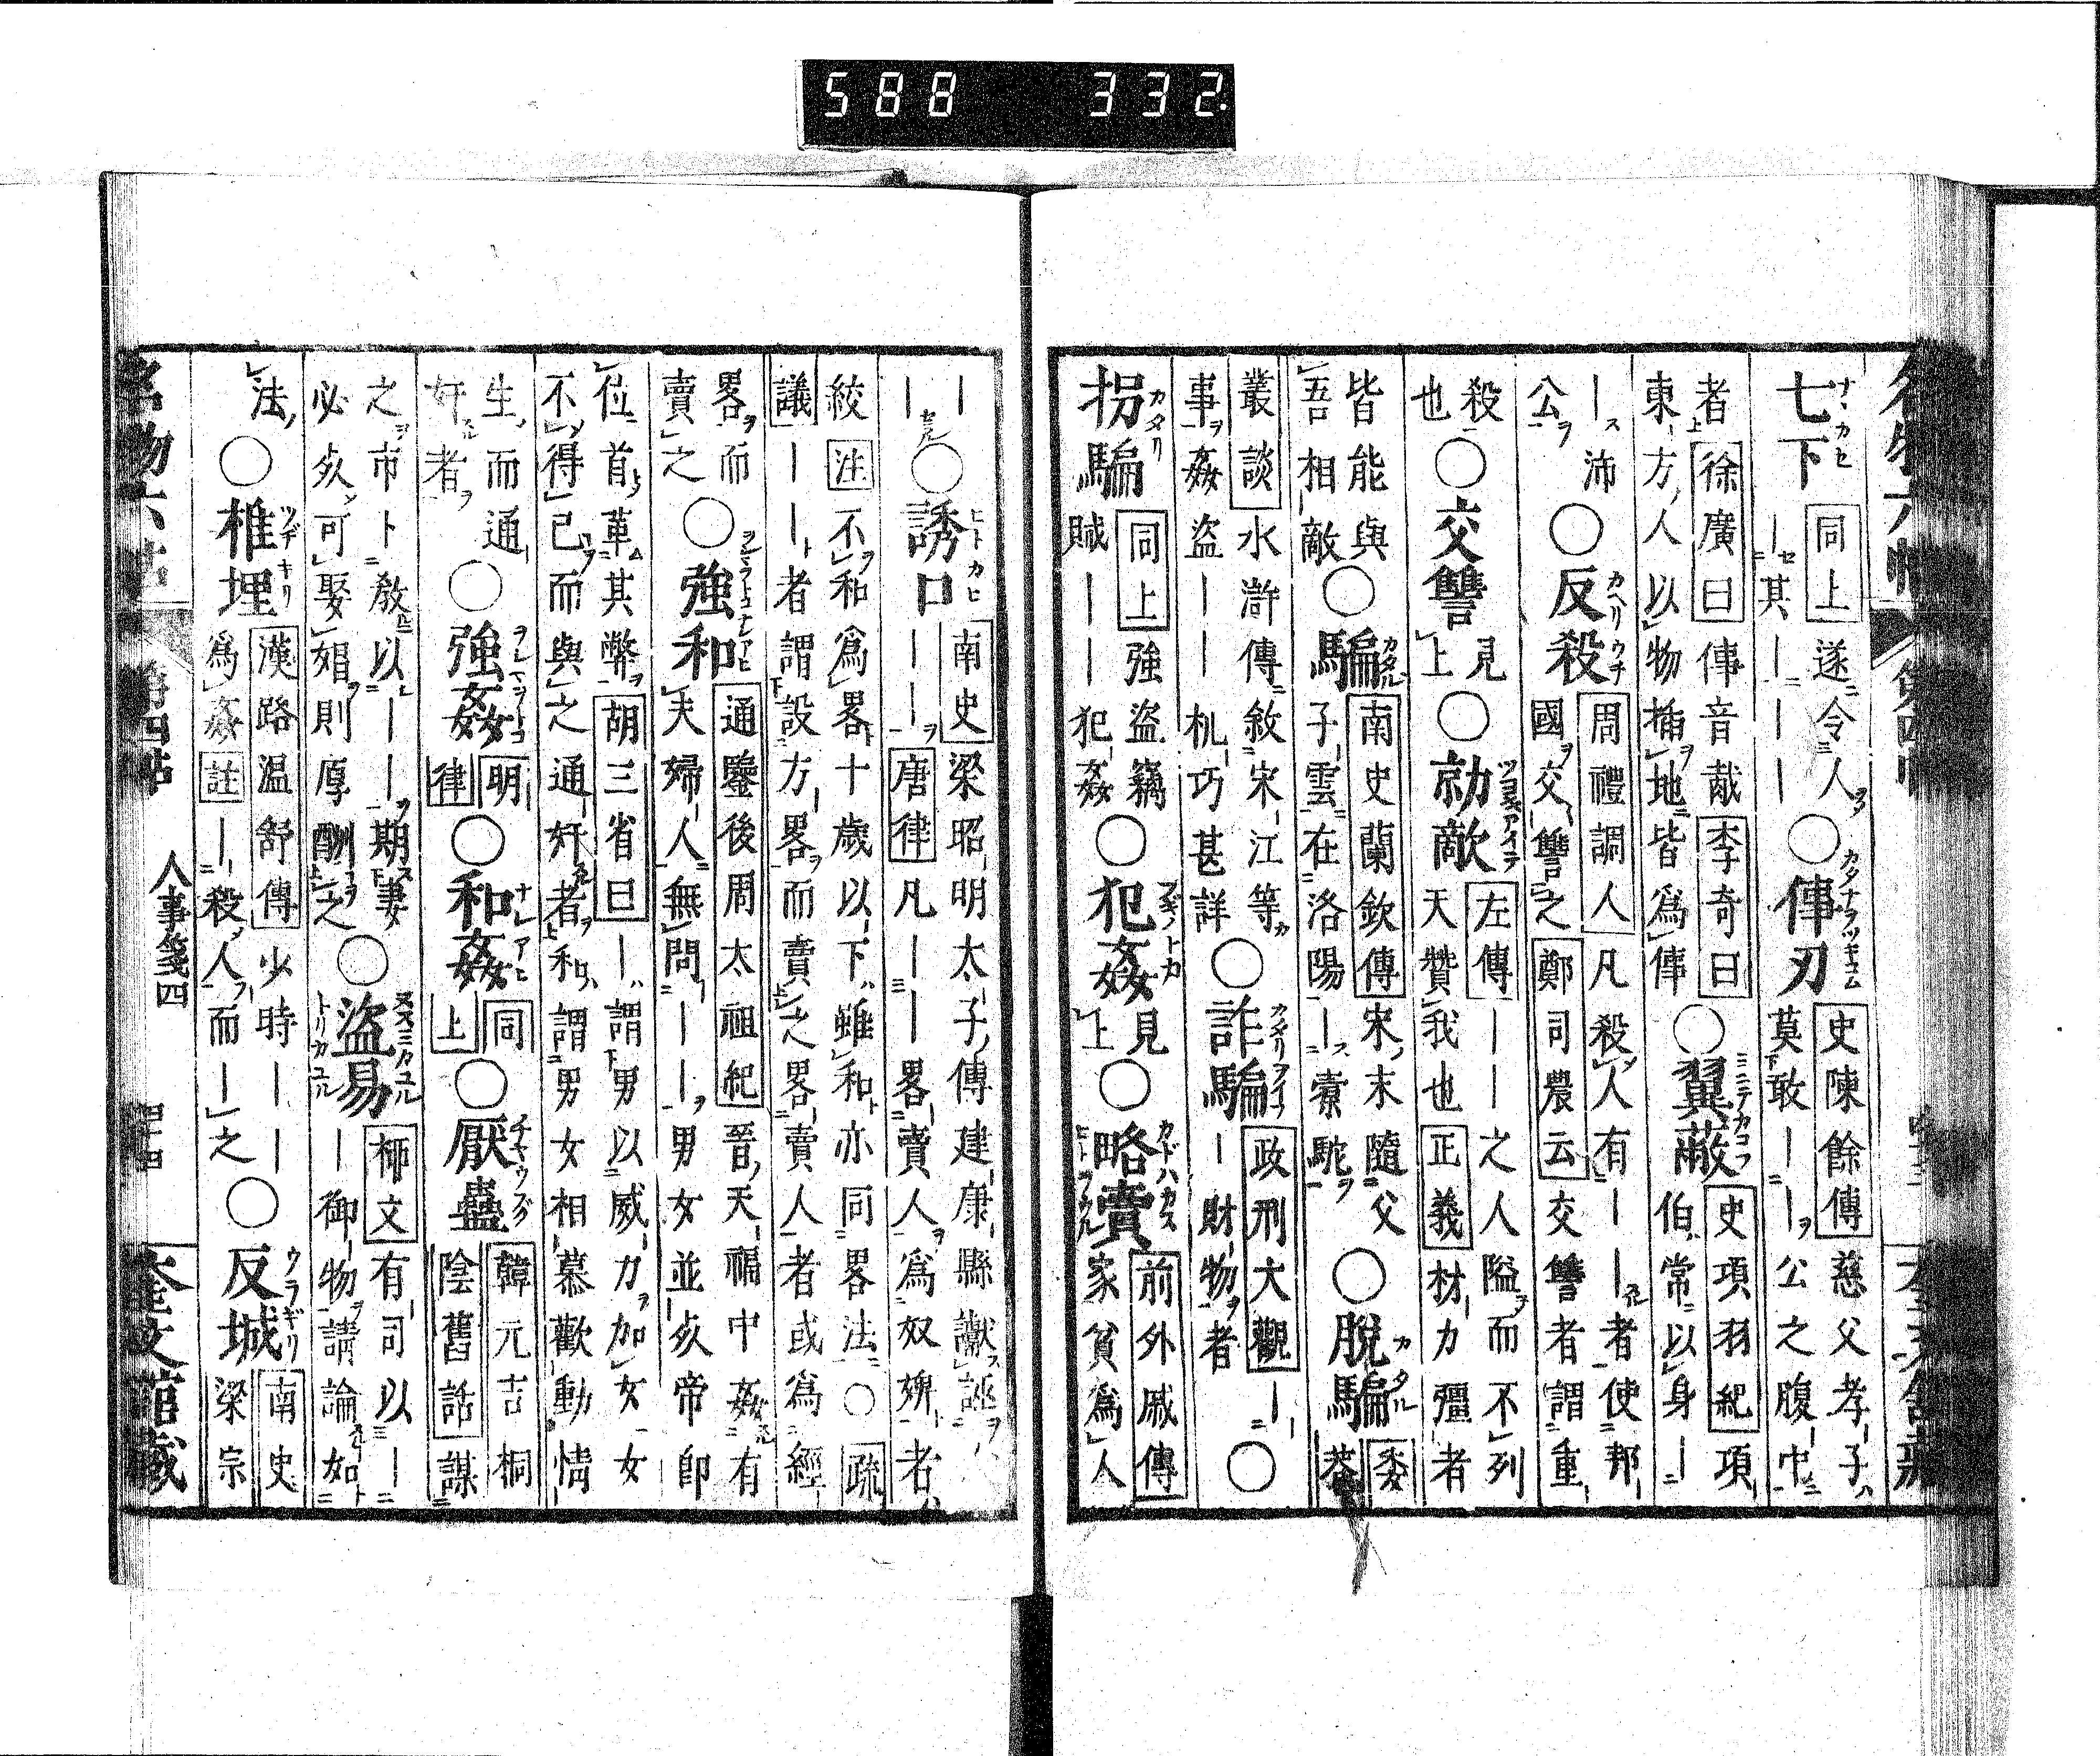 588 332
七下 同上 遂令人
｜其｜｜｜
○傳刃 史陳餘傳 慈父孝子
莫敢｜｜公之腹中
者 徐廣曰 傳音胾 李奇曰
東方人以物揷地皆爲傳
○翼蔽 史項羽紀 項
伯常以身｜
｜沛
公
○反殺 周禮調人 凡殺人有｜｜者使邦
國交讐之 鄭司農云 交讐者謂重
殺
也
○交讐 見上
○勍敵 左傳 ｜｜之人隘而不列
天贊我也 正義 材力彊者
皆能與
吾相敵
○騙 南史蘭欽傳 宋末隨父
子雲在洛陽｜橐駝
○脫騙 委巷
叢談 水滸傳敘宋江等
事姦盜｜｜机巧甚詳
○詐騙 政刑大觀 ｜
｜財物者
○
拐騙 同上 強盜竊
賊｜｜犯姦
○犯姦 見上
○略賣 前外戚傳
家貧爲人
｜
｜
○誘口 南史 梁昭明太子傳建康縣讞誣
｜｜ 唐律 凡｜｜畧賣人爲奴婢者
絞 注 不和爲畧十歲以下雖和亦同畧法○ 疏
議 ｜｜者謂設方畧而賣之畧賣人者或爲經
畧而
賣之
○強和 通鑒後周太祖紀 晉天福中姦有
夫婦人無問｜｜男女並死帝卽
位首革其弊 胡三省曰 ｜謂男以威力加女女
不得已而與之通奸者和謂男女相慕歡動情
生而通
奸者
○強姦 明律
○和姦 同上
○厭蠱 韓元吉桐
陰舊話 謀
之市卜敎以｜｜期妻
必死可娶娼則厚酬之
○盜易 柳文 有司以｜
｜御物請論如
法
○椎埋 漢路温舒傳 少時｜｜
爲姦 註 ｜殺人而｜之
○反城 南史
梁宗
名物六帖 第四帖 人事箋四 四十四 奎文舘藏